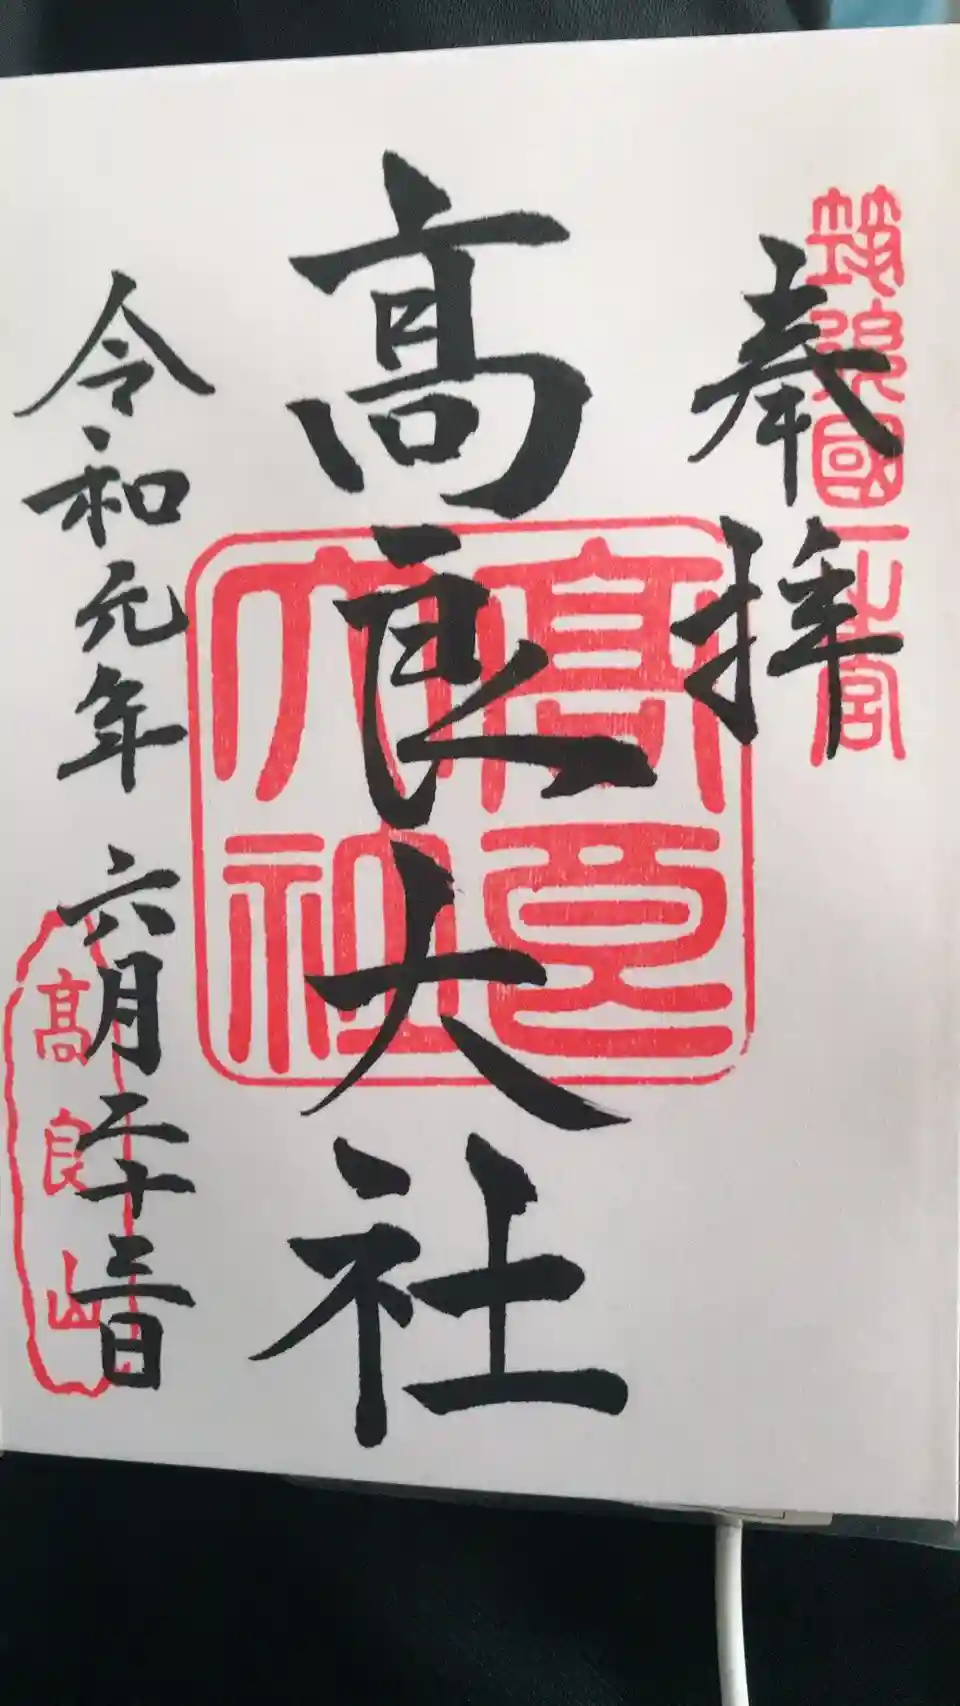 奉拝
筑後國一之宮
高良大社
高良大社
令和元年 六月二十三日
高良山